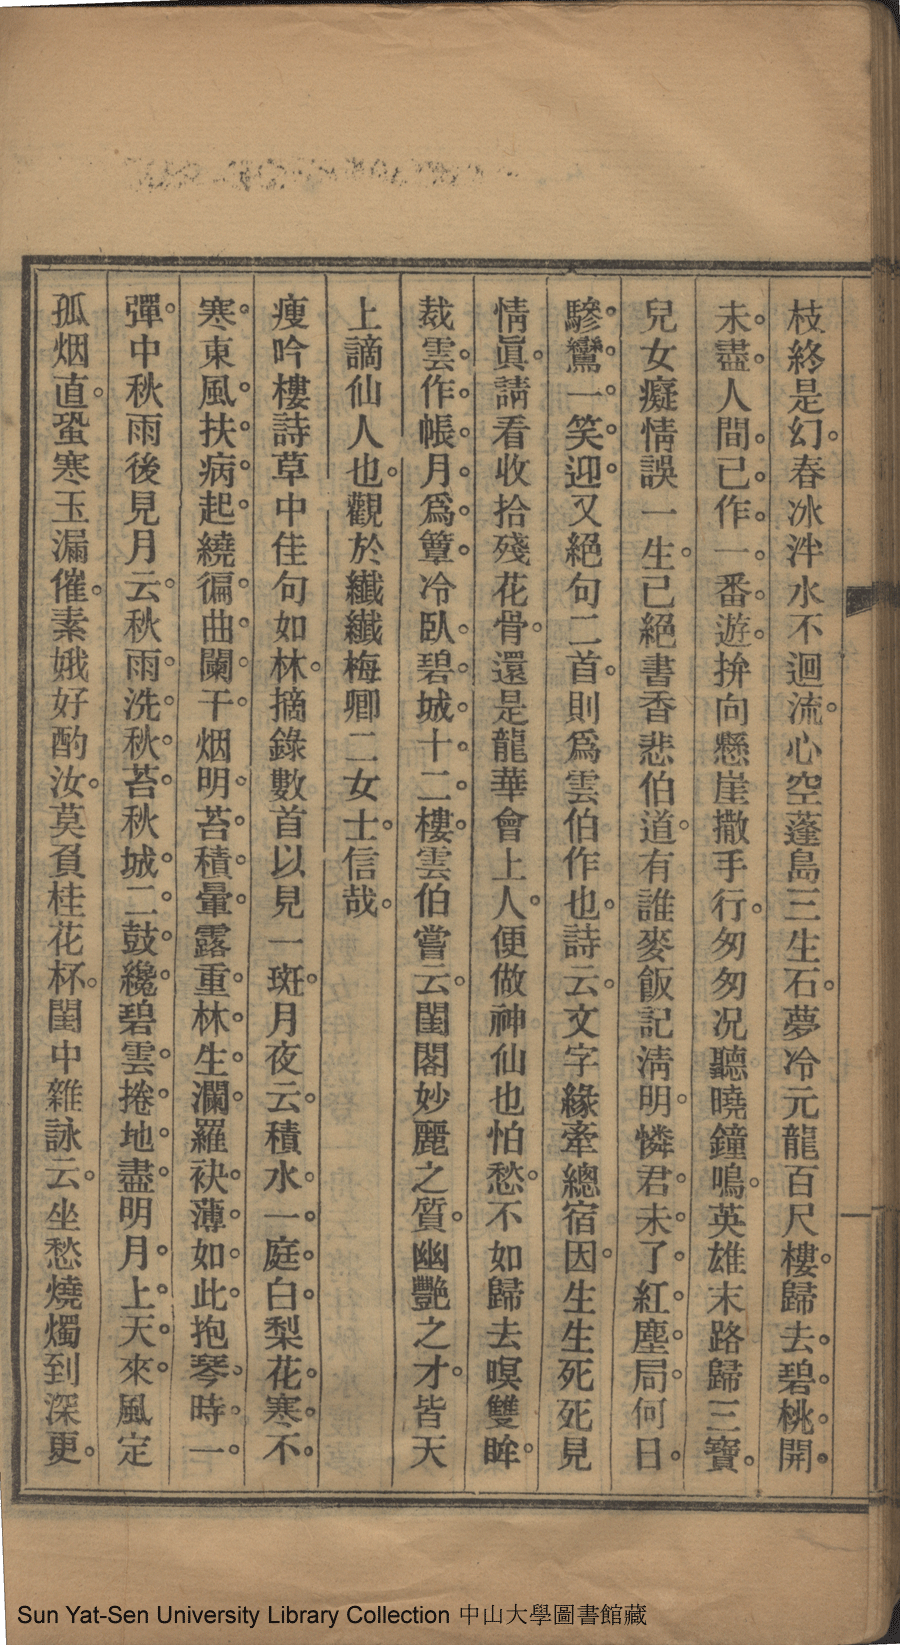 枝終是幻。春冰泮水不迴流。心空蓬島三生石。夢冷元龍百尺樓。歸去。碧。桃。開。
未。盡。人間。已。作。一。番。遊。拚向懸崖撒手行。匆匆况聽曉鐘鳴。英雄末路歸三寶。
兒女癡情誤一生。已絕書香悲伯道。有誰麥飯記淸明。憐君。未。了。紅。塵。局。何日。
驂。鸞。一。笑。迎。又絕句二首。則爲雲伯作也。詩云。文字緣牽總宿因。生生死死見
情眞。請看收拾殘花骨。還是龍華會上人。便做神仙也怕愁。不如歸去暝雙眸。
裁雲。作。帳。月。爲。簟。冷臥。碧。城。十。二。樓。雲伯嘗云。閨閣妙麗之質。幽艷之才。皆天
上謫仙人也。觀於纖纖梅卿二女士。信哉。
瘦吟樓詩草中佳句如林。摘錄數首以見一斑。月夜云。積水。一。庭。白。梨花。寒。不。
寒。東風。扶。病。起。繞徧。曲。闌。干。烟明。苔。積。暈。露重。林。生。瀾。羅袂。薄。如。此。抱琴。時。一。
彈。中秋雨後見月云。秋雨。洗。秋。苔。秋城。二。鼓。纔。碧雲。捲。地。盡。明月。上。天。來。風定
孤烟直。蛩寒玉漏催。素娥好酌汝。莫負桂花杯。閨中雜詠云。坐愁燒燭到深更。
Sun Yat-Sen University Library Collection 中山大學圖書館藏